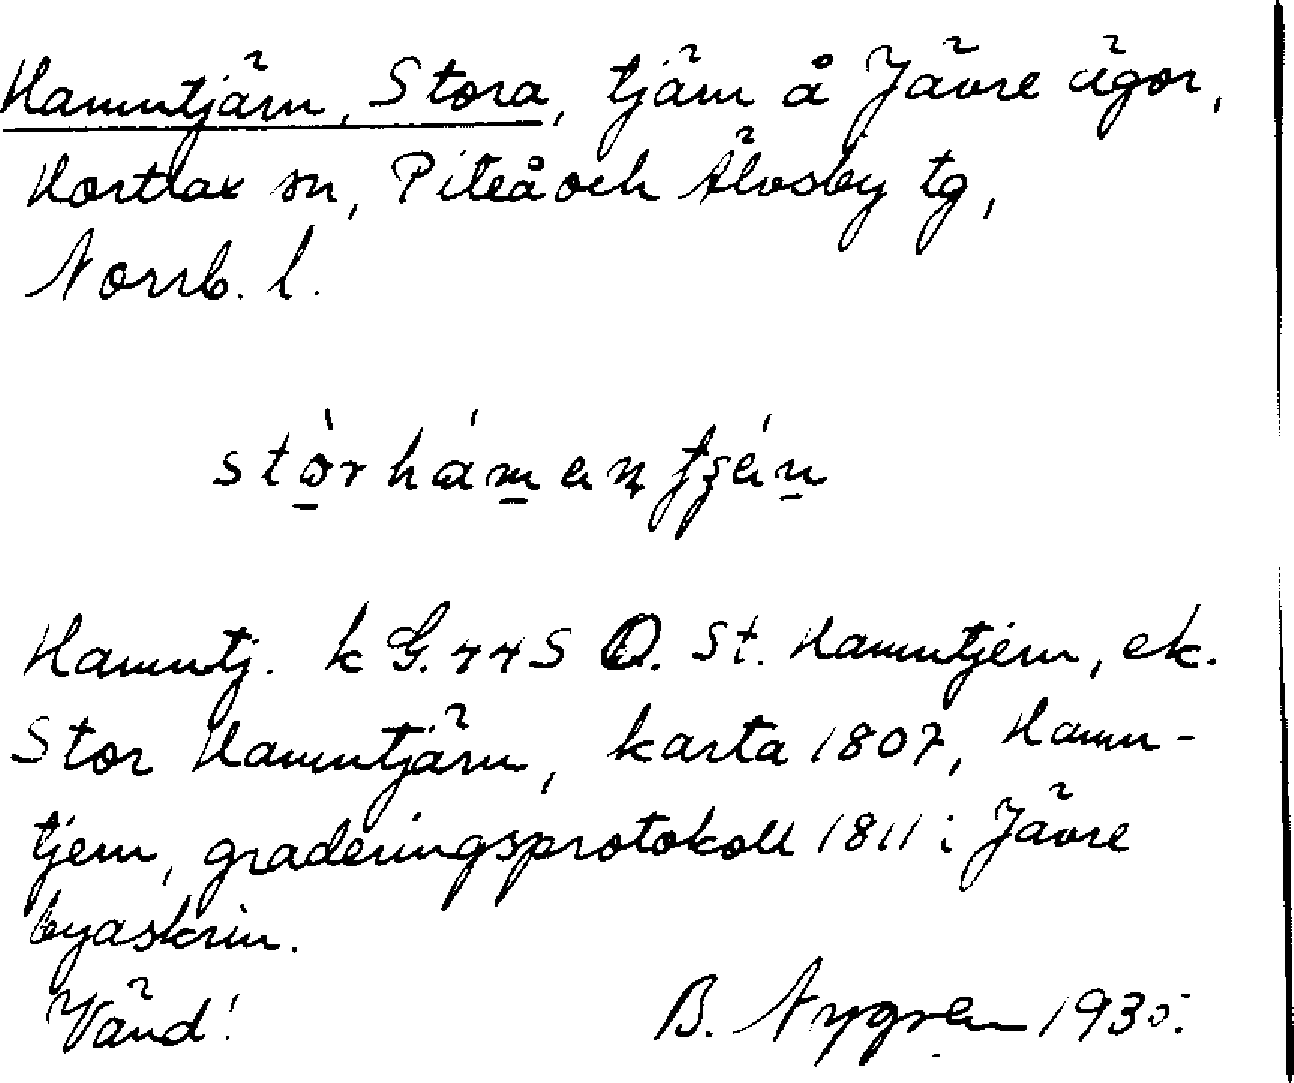 Hamntjärn, Stora, tjärn å Jävre ägor,
Hortlax sn, Piteå och Älvsby tg,
Norrb. l.
Hamntj. k G. 44 S O. St. Hamntjern, ek.
Stor Hamntjärn, karta 1807, Hamn-
tjern, graderingsprotokoll 1811 i Jävre
byaskrin.
Vänd!
B. Nygren 1935.